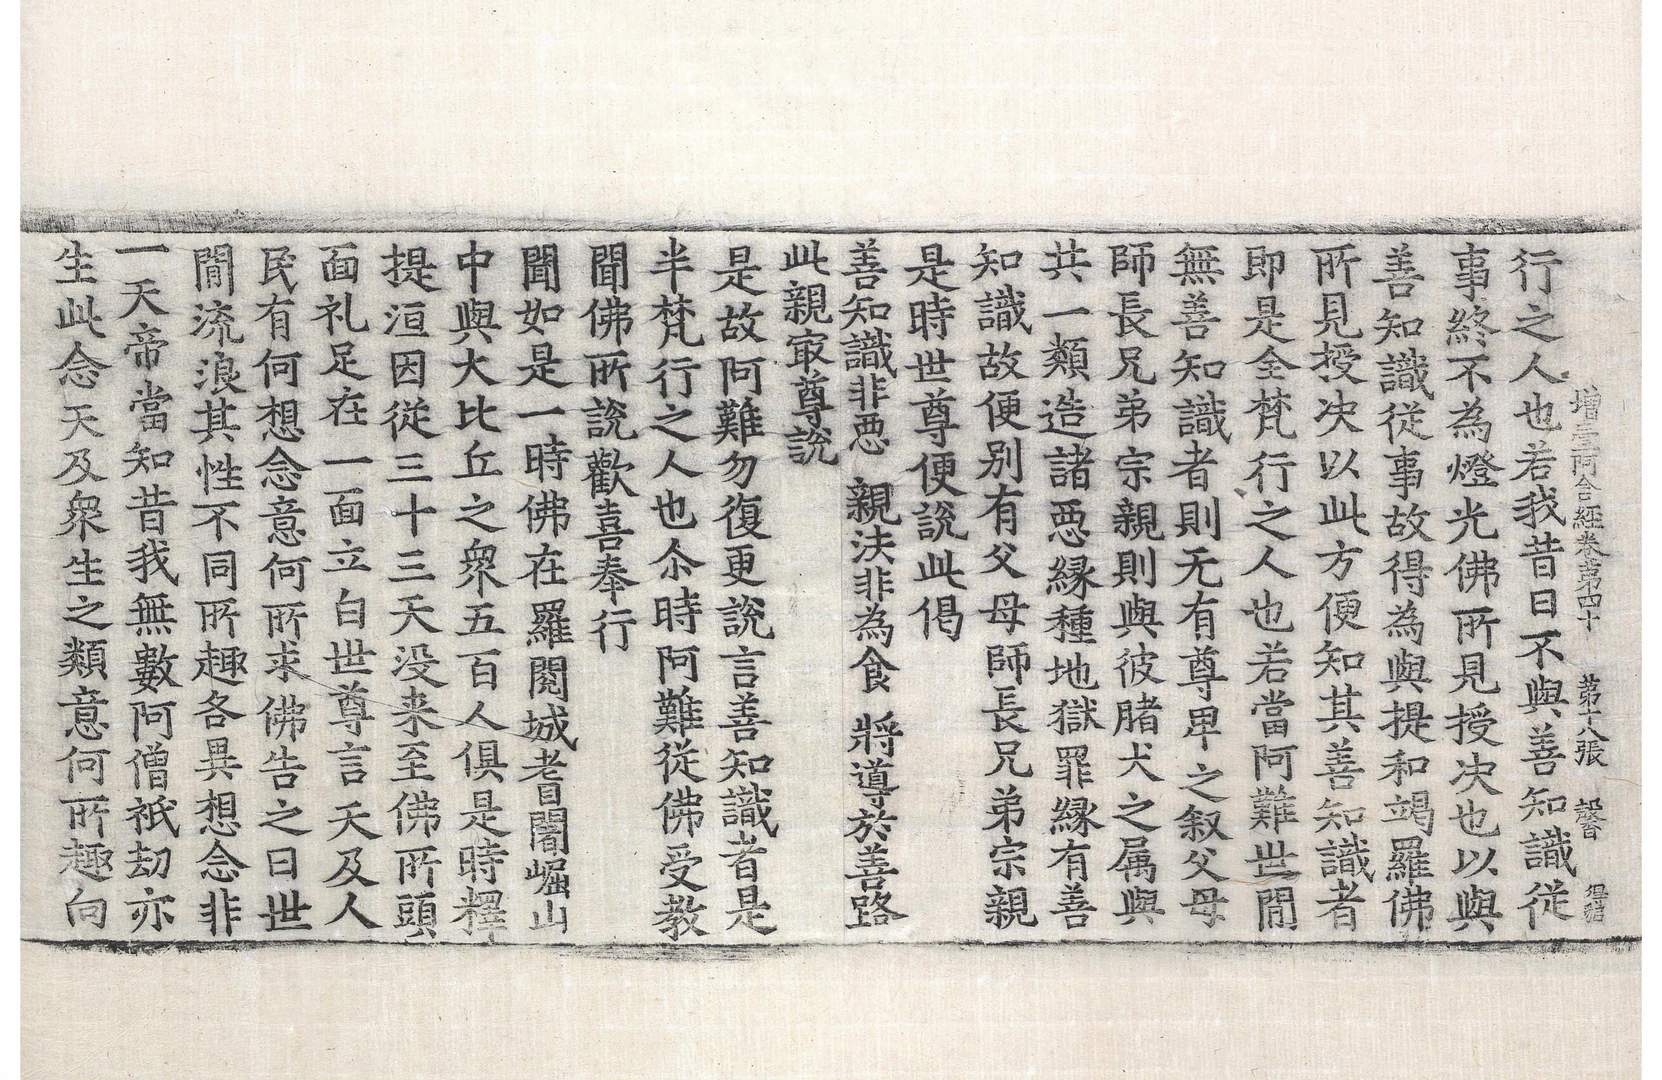 增壹阿含經卷第四十 第十八張 馨 得招
行之人也若我昔日不與善知識從
事終不為燈光佛所見授决也以與
善知識從事故得為與提和竭羅佛
所見授决以此方便知其善知識者
即是全梵行之人也若當阿難世閒
無善知識者則无有尊卑之叙父母
師長兄弟宗親則與彼䐗犬之属與
共一類造諸惡縁種地獄罪縁有善
知識故便別有父母師長兄弟宗親
是時世尊便說此偈
善知識非惡 親法非為食 將導於善路
此親㝡尊說
是故阿難勿復更說言善知識者是
半梵行之人也尒時阿難從佛受教
聞佛所說歡喜奉行
聞如是一時佛在羅閱城耆闍崛山
中與大比丘之衆五百人俱是時釋
提洹因從三十三天没来至佛所頭
面礼足在一面立白世尊言天及人
民有何想念意何所求佛告之曰世
閒流浪其性不同所趣各異想念非
一天帝當知昔我無數阿僧祇劫亦
生此念天及衆生之類意何所趣向